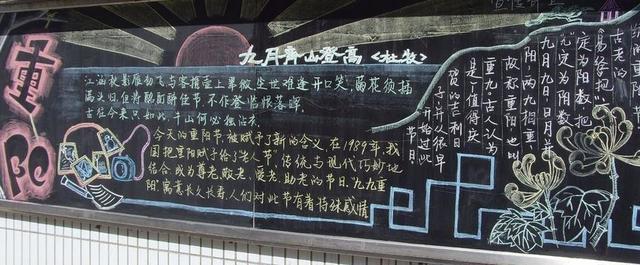 重阳
九月齐山登高 <杜牧>
江涵秋影雁初飞与客携壶上翠微尘世难逢开口笑, 菊花须插
满头归,但将酩酊酬佳节不作登临恨落晖
古往今来只如此,牛山何必独沾衣
今天的重阳节,被赋予了新的含义,在1989年,我
国把重阳赋予给了"老人节",传统与现代巧妙地
结合,成为尊老、敬老、爱老、助老的节日.九九重
阳,寓意长久长寿,人们对此节有着特殊感情
古老的
《易经》把"六"
定为阴数,把
"九"定为阳数,
九月九日,日月并
阳,两九相重,
故称重阳,也叫
重九,古人认为
是个值得庆
贺的吉利日
子,并从很早
开始过此
节日.